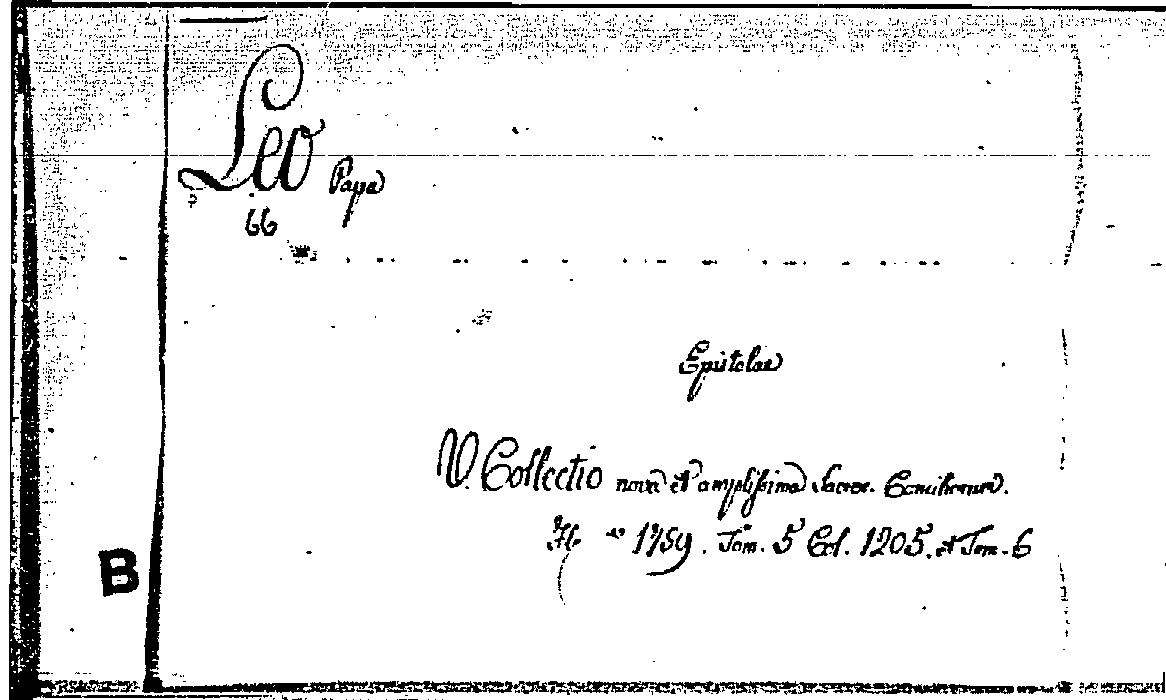 Leo Papa
66
Epistolae
V. Collectio nova et amplissima Sacror. Conciliorum.
1759. Tom. 5 Col. 1205. et Tom. 6
B